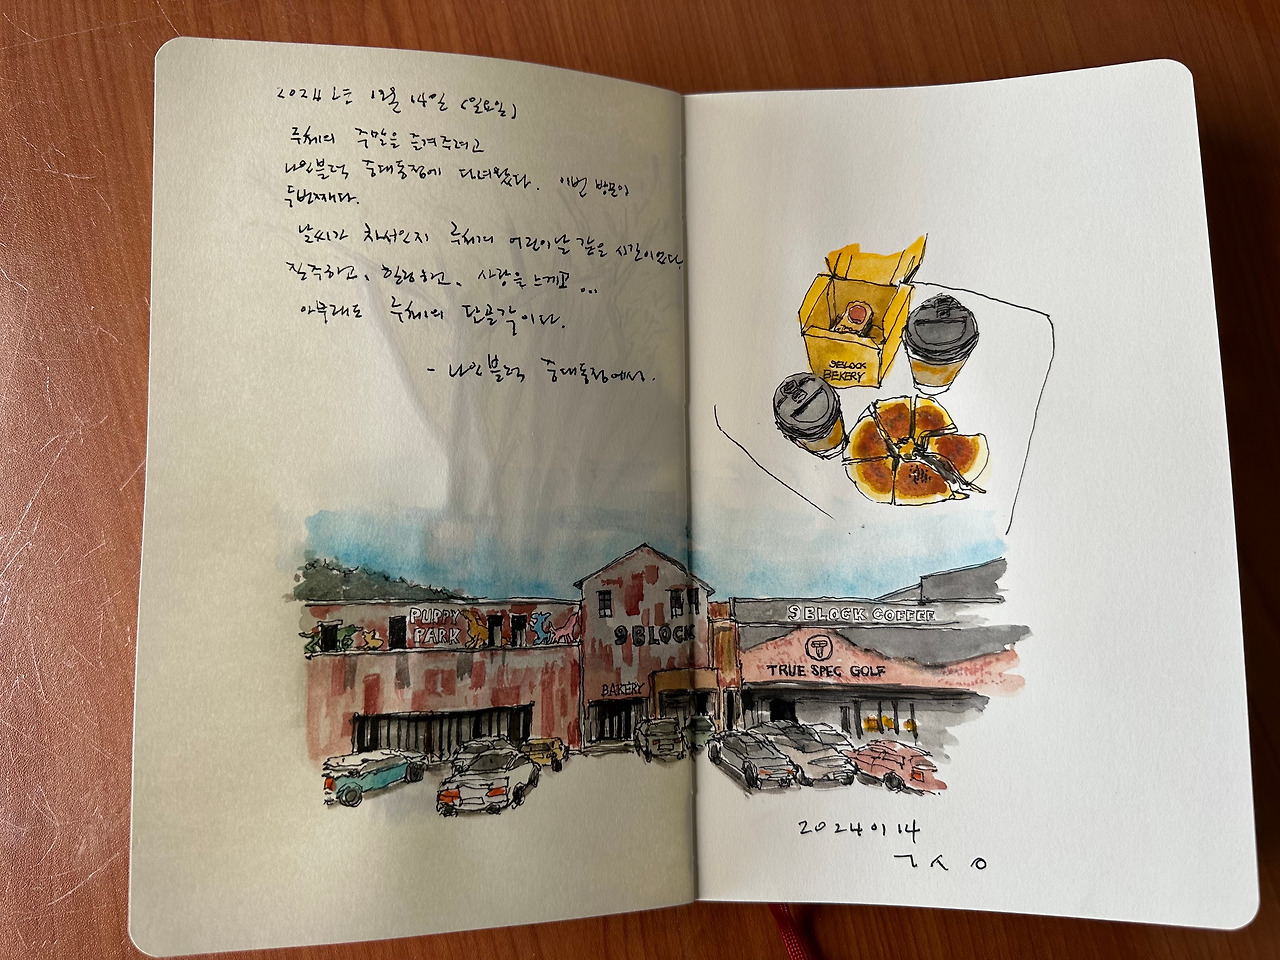 2024년 1월 14일 (일요일)
루체의 주말을 즐겨주려고
나인블럭 중대동점에 다녀왔다. 이번 방문이
두번째다.
날씨가 차서인지 루체의 어린이날 같은 시간이었다.
질주하고, 힐링하고, 사랑을 느끼고 ...
아무래도 루체의 단골각이다.
- 나인블럭 중대동점에서.
9BLOCK
BEKERY
PUPPY
PARK
9 BLOCK
BAKERY
9 BLOCK COFFEE
T
TRUE SPEC GOLF
2024 01 14
ㄱ ㅅ ㅇ